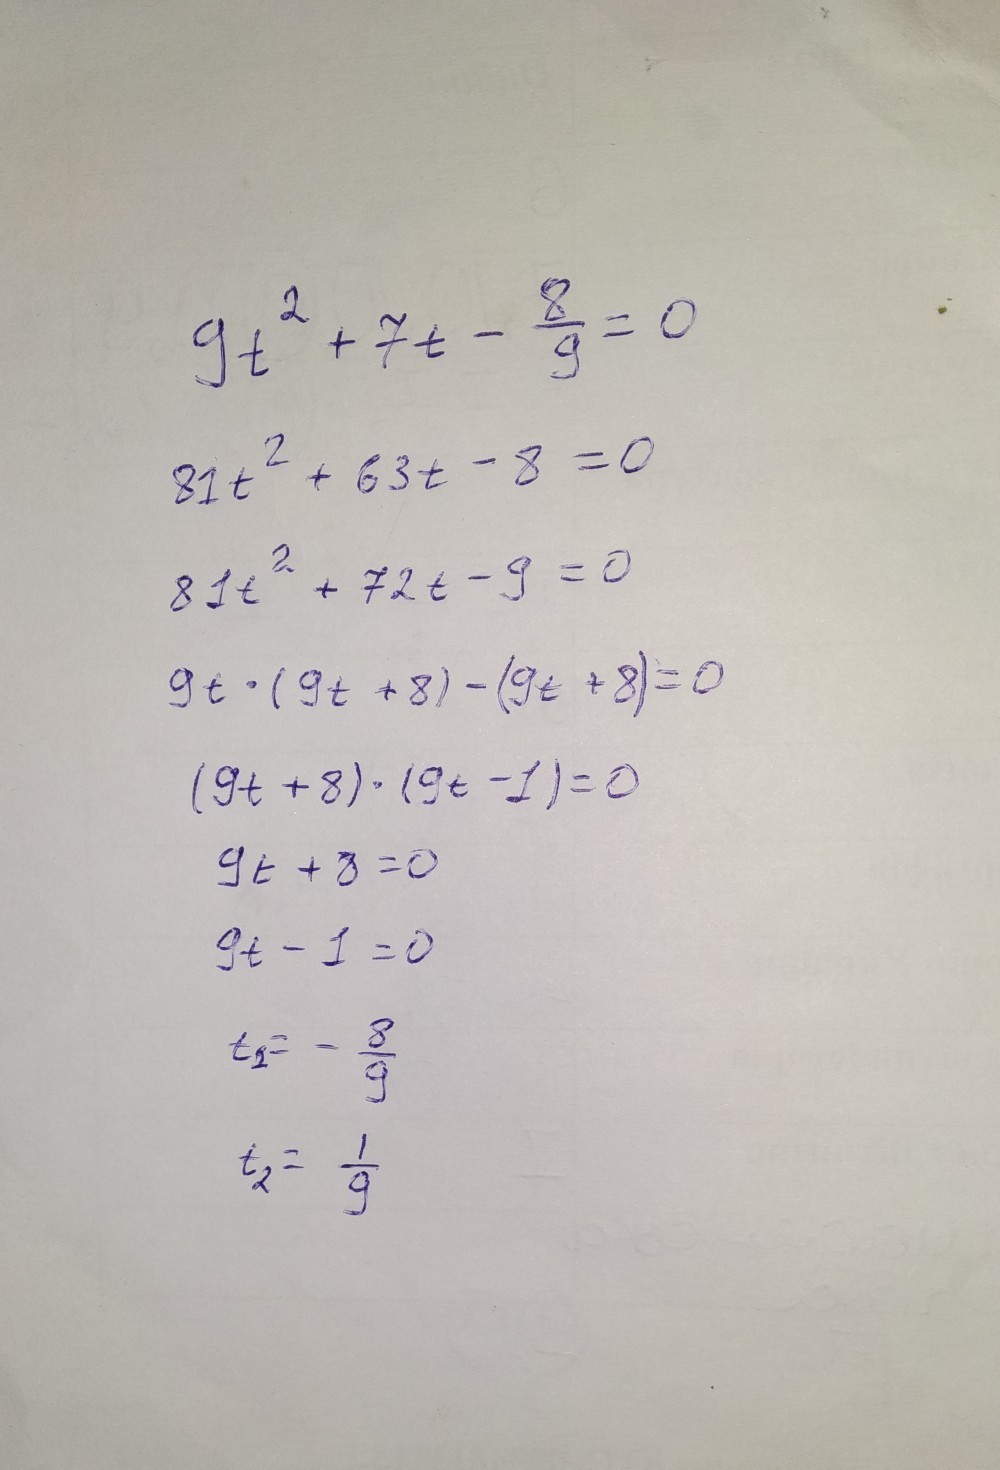 9t² + 7t - 8/9 = 0
81t² + 63t - 8 = 0
81t² + 72t - 9 = 0
9t · (9t + 8) - (9t + 8) = 0
(9t + 8) · (9t - 1) = 0
9t + 8 = 0
9t - 1 = 0
t₁ = - 8/9
t₂ = 1/9